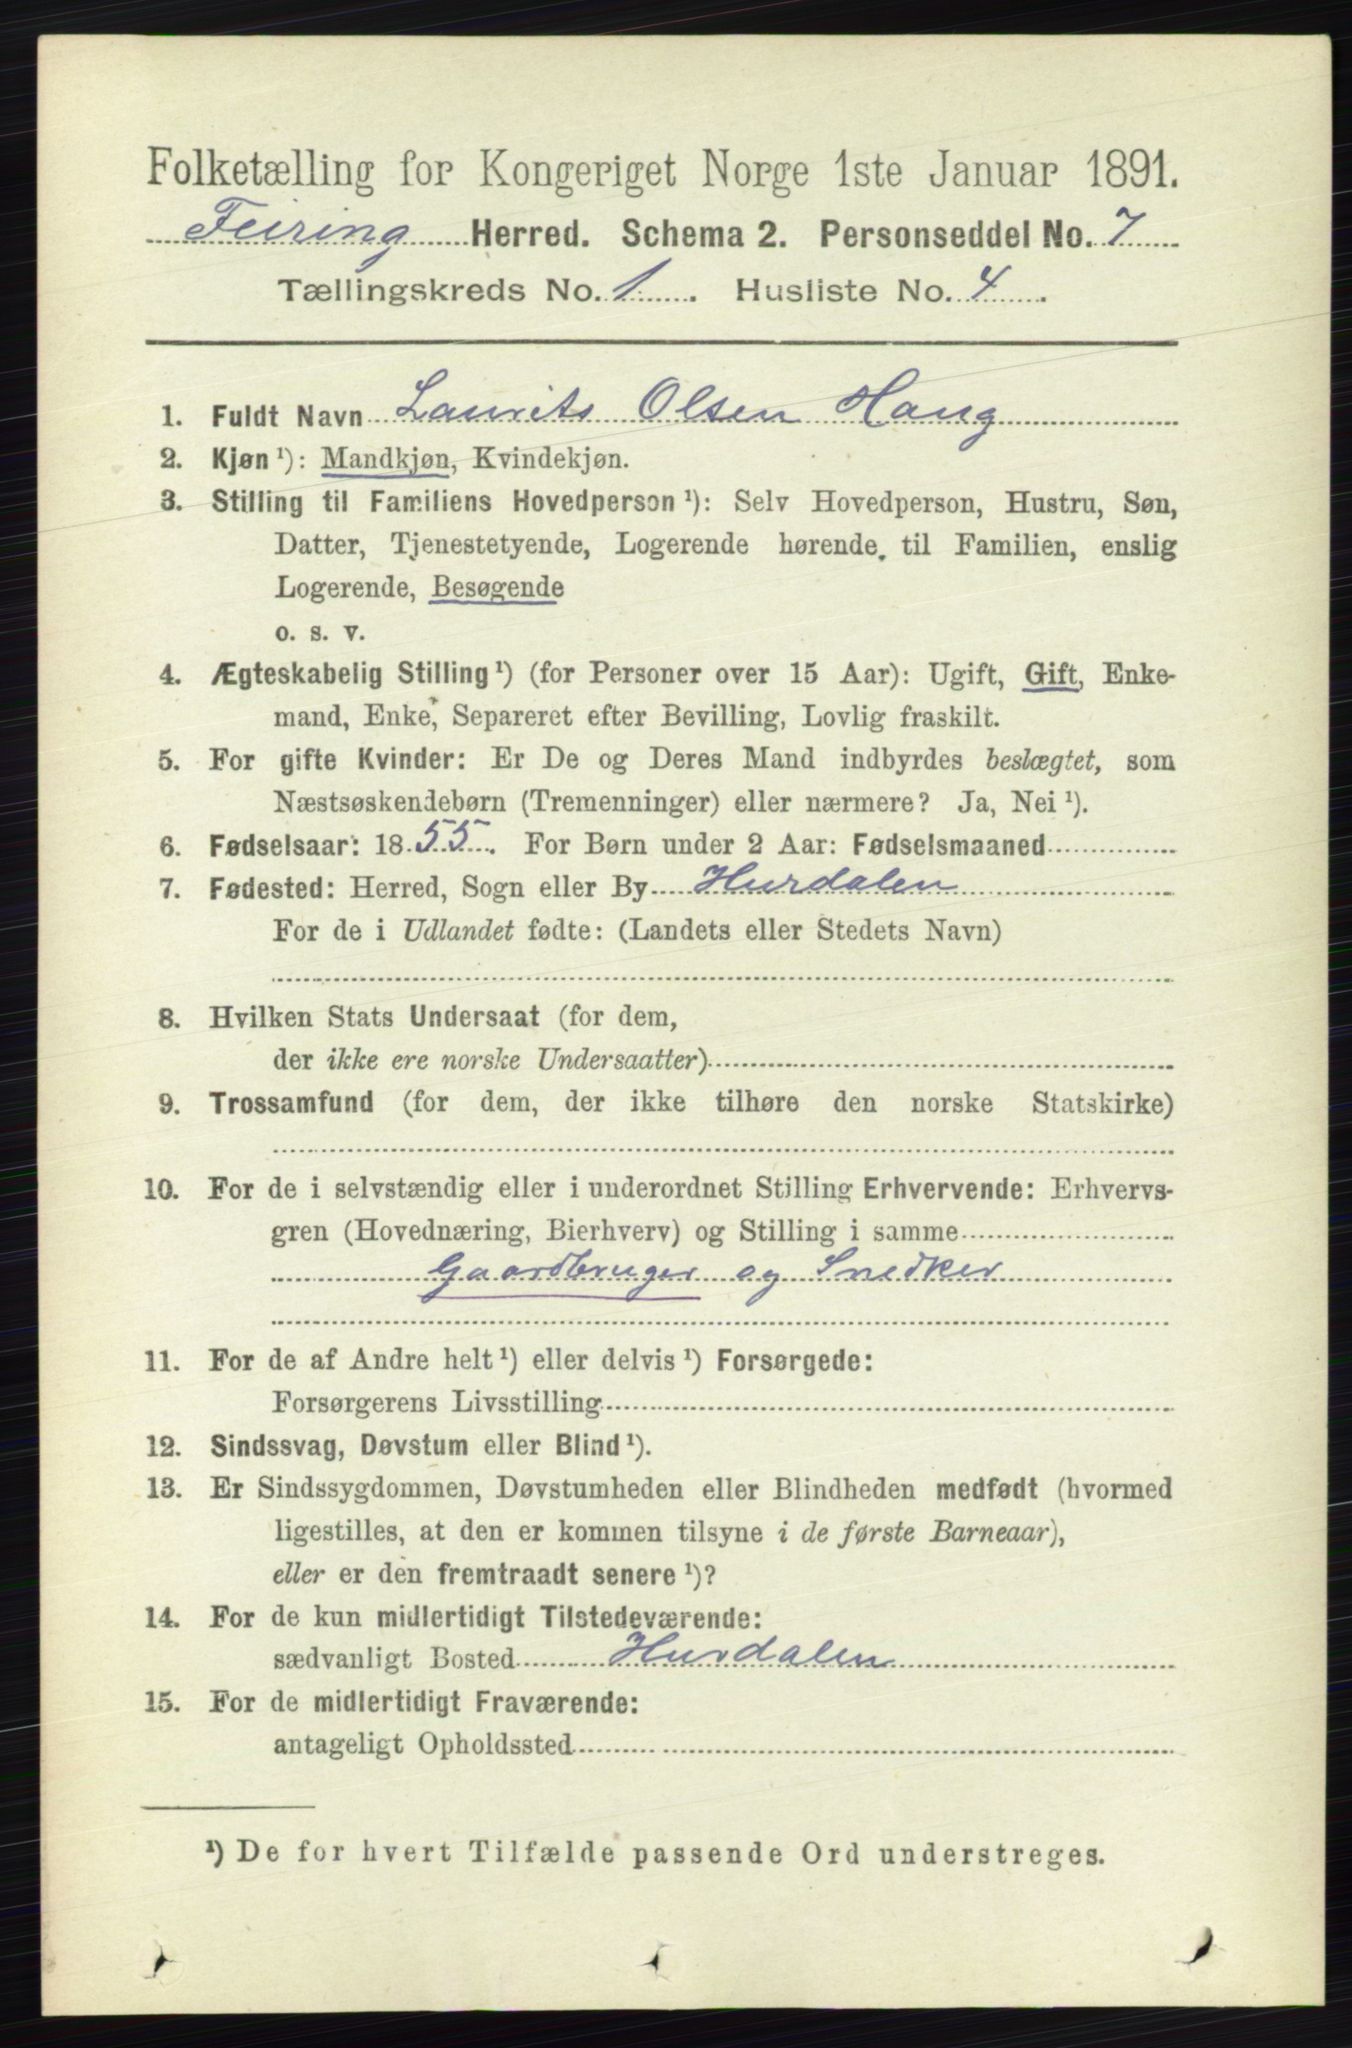 Folketælling for Kongeriget Norge 1ste Januar 1891.
Feiring Herred. Schema 2. Personseddel No. 7
Tællingskreds No. 1. Husliste No. 4.
1. Fuldt Navn Laurits Olsen Haug
2. Kjøn ¹): Mandkjøn, Kvindekjøn.
3. Stilling til Familiens Hovedperson ¹): Selv Hovedperson, Hustru, Søn,
Datter, Tjenestetyende, Logerende hørende til Familien, enslig
Logerende, Besøgende
o. s. v.
4. Ægteskabelig Stilling ¹) (for Personer over 15 Aar): Ugift, Gift, Enke-
mand, Enke, Separeret efter Bevilling, Lovlig fraskilt.
5. For gifte Kvinder: Er De og Deres Mand indbyrdes beslægtet, som
Næstsøskendebørn (Tremenninger) eller nærmere? Ja, Nei ¹).
6. Fødselsaar: 1855. For Børn under 2 Aar: Fødselsmaaned
7. Fødested: Herred, Sogn eller By Hurdalen
For de i Udlandet fødte: (Landets eller Stedets Navn)
8. Hvilken Stats Undersaat (for dem,
der ikke ere norske Undersaatter)
9. Trossamfund (for dem, der ikke tilhøre den norske Statskirke)
10. For de i selvstændig eller i underordnet Stilling Erhvervende: Erhvervs-
gren (Hovednæring, Bierhverv) og Stilling i samme
Gaardbruger og Snedker
11. For de af Andre helt ¹) eller delvis ¹) Forsørgede:
Forsørgerens Livsstilling
12. Sindssvag, Døvstum eller Blind ¹).
13. Er Sindssygdommen, Døvstumheden eller Blindheden medfødt (hvormed
ligestilles, at den er kommen tilsyne i de første Barneaar),
eller er den fremtraadt senere ¹)?
14. For de kun midlertidigt Tilstedeværende:
sædvanligt Bosted Hurdalen
15. For de midlertidigt Fraværende:
antageligt Opholdssted
¹) De for hvert Tilfælde passende Ord understreges.